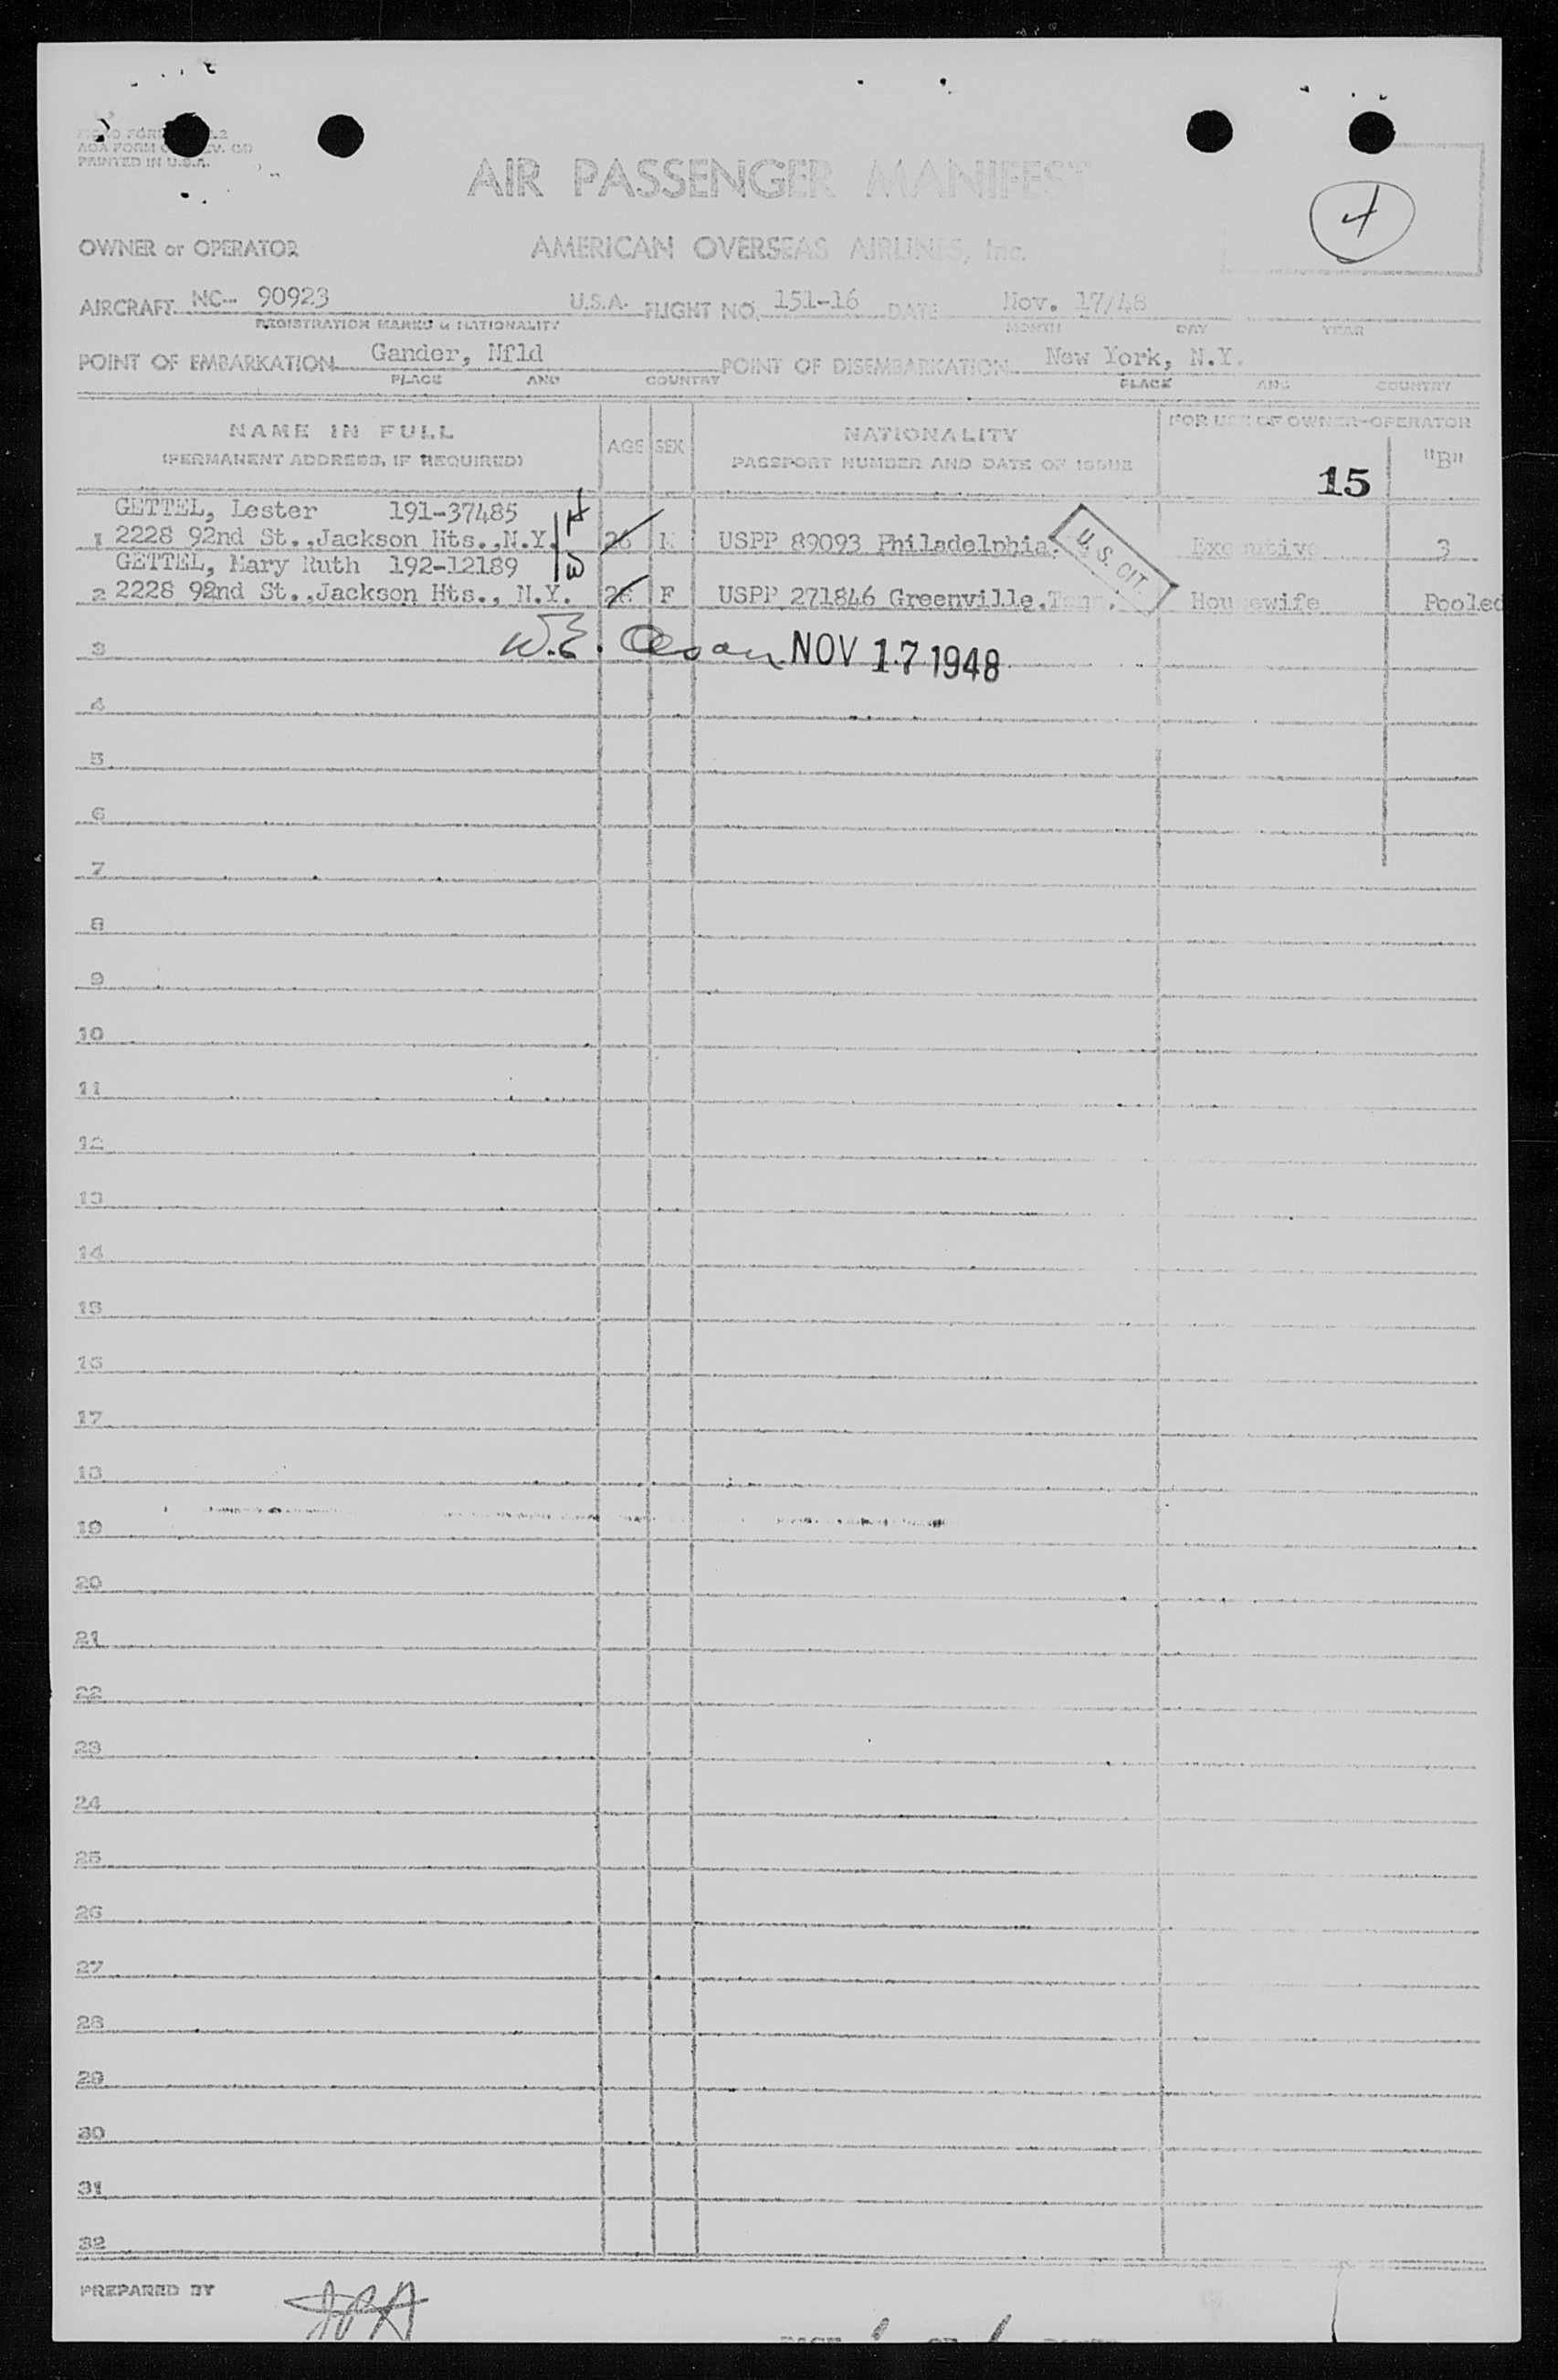 PRINTED IN U.S.A.
AIR PASSENGER MANIFEST
4
OWNER or OPERATOR AMERICAN OVERSEAS AIRLINES, Inc.
AIRCRAFT NC- 90923 U.S.A. FLIGHT NO. 151-16 DATE Nov. 17/48
REGISTRATION MARKS & NATIONALITY MONTH DAY YEAR
POINT OF EMBARKATION Gander, Nfld POINT OF DISEMBARKATION New York, N.Y.
PLACE AND COUNTRY PLACE AND COUNTRY
NAME IN FULL AGE SEX NATIONALITY FOR USE OF OWNER-OPERATOR
(PERMANENT ADDRESS, IF REQUIRED) PASSPORT NUMBER AND DATE OF ISSUE 15 "B"
GETTEL, Lester 191-37485
1 2228 92nd St.,Jackson Hts.,N.Y. M USPP 89093 Philadelphia. U.S. CIT. Executive 3
GETTEL, Mary Ruth 192-12189
2 2228 92nd St.,Jackson Hts., N.Y. F USPP 271846 Greenville.Tenn. Housewife Pooled
3 W.E. NOV 17 1948
4
5
6
7
8
9
10
11
12
13
14
15
16
17
18
19
20
21
22
23
24
25
26
27
28
29
30
31
32
PREPARED BY